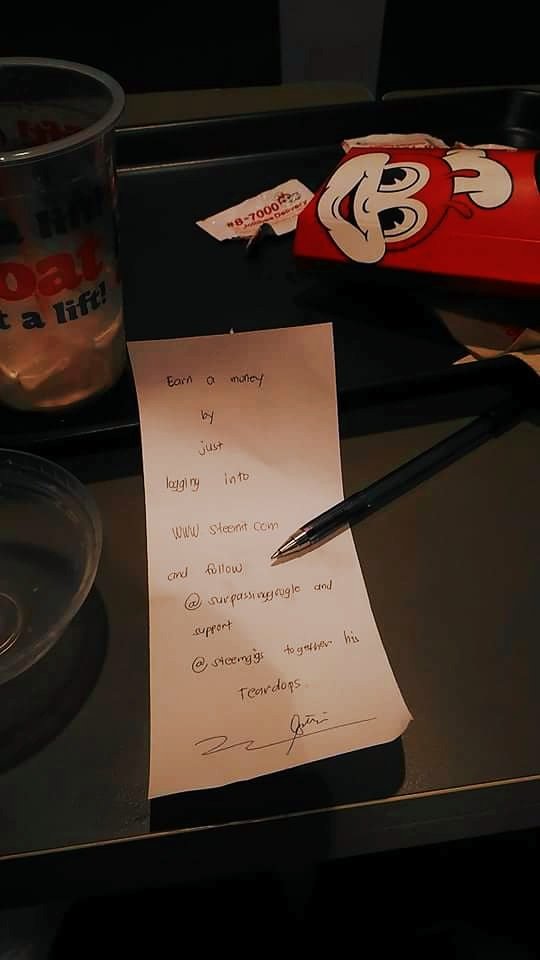 a lift
oat
t a lift!
#8-7000
Jollibee Delivery
Earn a money
by
just
logging into
www steemit com
and follow
@ surpassinggoogle and
support
@ steemgigs together his
Teardops.